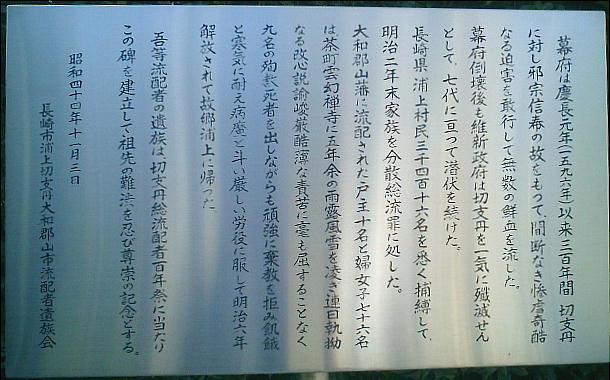 幕府は慶長元年(一五九六年)以来三百年間 切支丹
に対し邪宗信奉の故をもつて、間断なき惨虐奇酷
なる迫害を敢行して無数の鮮血を流した。
幕府倒壊後も維新政府は切支丹を一気に殲滅せん
として、七代に亘つて潜伏を続けた。
長崎県浦上村民三千四百十六名を悉く捕縛して、
明治二年末家族を分散総流罪に処した。
大和郡山藩に流配された戸主十名と婦女子七十六名
は茶町雲幻禅寺に五年余の雨露風雪を凌ぎ連日執拗
なる改心説諭峻厳酷薄な責苦に毫も屈することなく
九名の殉教死者を出しながらも頑強に棄教を拒み飢餓
と寒気に耐え病魔と斗い厳しい労役に服して明治六年
解放されて故郷浦上に帰つた。
吾等流配者の遺族は、切支丹総流配者百年祭に当たり
この碑を建立して祖先の難渋を忍び尊崇の記念とする。
昭和四十四年十一月三日
長崎市浦上切支丹大和郡山市流配者遺族会